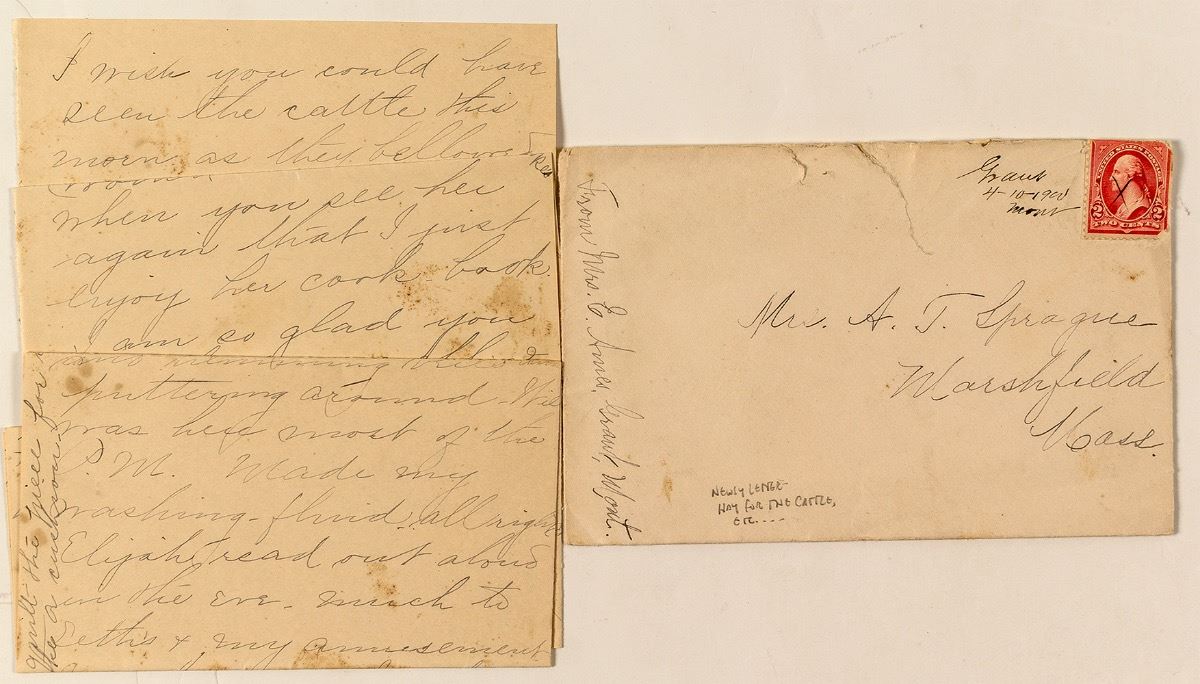 I wish you could have
seen the cattle this
morn as they bellowed
when you see her
again that I just
enjoy her cook-book.
I am so glad you
puttering around. Will
was here most of the
P. M. Made my
washing-fluid all right
Elijah read out aloud
in the eve. much to
& my amusement
quilt the piece for
a cushion.
From Mrs. E. Ames, Grant, Mont.
Grant
4-10-1900
Mont
UNITED STATES POSTAGE
2 2
TWO CENTS
Mrs. A. T. Sprague
Marshfield
Mass.
NEWLY LETTER-
HAY FOR THE CATTLE,
ETC....